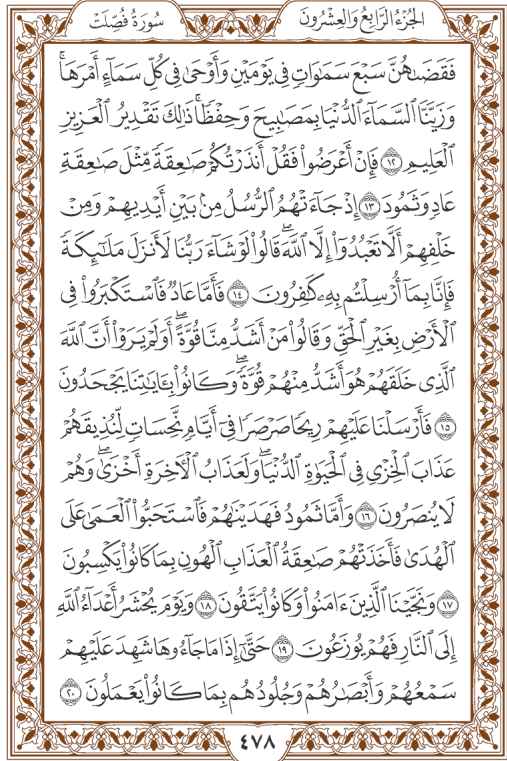 الجُزْءُ الرَّابِعُ وَالعِشْرُونَ
سُورَةُ فُصِّلَتْ
فَقَضَىٰهُنَّ سَبْعَ سَمَٰوَاتٍ فِي يَوْمَيْنِ وَأَوْحَىٰ فِي كُلِّ سَمَآءٍ أَمْرَهَاۚ
وَزَيَّنَّا ٱلسَّمَآءَ ٱلدُّنْيَا بِمَصَٰبِيحَ وَحِفْظًاۚ ذَٰلِكَ تَقْدِيرُ ٱلْعَزِيزِ
ٱلْعَلِيمِ ١٢ فَإِنْ أَعْرَضُوا۟ فَقُلْ أَنذَرْتُكُمْ صَٰعِقَةً مِّثْلَ صَٰعِقَةِ
عَادٍ وَثَمُودَ ١٣ إِذْ جَآءَتْهُمُ ٱلرُّسُلُ مِنۢ بَيْنِ أَيْدِيهِمْ وَمِنْ
خَلْفِهِمْ أَلَّا تَعْبُدُوٓا۟ إِلَّا ٱللَّهَۖ قَالُوا۟ لَوْ شَآءَ رَبُّنَا لَأَنزَلَ مَلَٰٓئِكَةً
فَإِنَّا بِمَآ أُرْسِلْتُم بِهِۦ كَٰفِرُونَ ١٤ فَأَمَّا عَادٌ فَٱسْتَكْبَرُوا۟ فِي
ٱلْأَرْضِ بِغَيْرِ ٱلْحَقِّ وَقَالُوا۟ مَنْ أَشَدُّ مِنَّا قُوَّةًۖ أَوَلَمْ يَرَوْا۟ أَنَّ ٱللَّهَ
ٱلَّذِي خَلَقَهُمْ هُوَ أَشَدُّ مِنْهُمْ قُوَّةًۖ وَكَانُوا۟ بِـَٔايَٰتِنَا يَجْحَدُونَ
١٥ فَأَرْسَلْنَا عَلَيْهِمْ رِيحًا صَرْصَرًا فِيٓ أَيَّامٍ نَّحِسَاتٍ لِّنُذِيقَهُمْ
عَذَابَ ٱلْخِزْيِ فِي ٱلْحَيَوٰةِ ٱلدُّنْيَاۖ وَلَعَذَابُ ٱلْـَٔاخِرَةِ أَخْزَىٰۖ وَهُمْ
لَا يُنصَرُونَ ١٦ وَأَمَّا ثَمُودُ فَهَدَيْنَٰهُمْ فَٱسْتَحَبُّوا۟ ٱلْعَمَىٰ عَلَى
ٱلْهُدَىٰ فَأَخَذَتْهُمْ صَٰعِقَةُ ٱلْعَذَابِ ٱلْهُونِ بِمَا كَانُوا۟ يَكْسِبُونَ
١٧ وَنَجَّيْنَا ٱلَّذِينَ ءَامَنُوا۟ وَكَانُوا۟ يَتَّقُونَ ١٨ وَيَوْمَ يُحْشَرُ أَعْدَآءُ ٱللَّهِ
إِلَى ٱلنَّارِ فَهُمْ يُوزَعُونَ ١٩ حَتَّىٰٓ إِذَا مَا جَآءُوهَا شَهِدَ عَلَيْهِمْ
سَمْعُهُمْ وَأَبْصَٰرُهُمْ وَجُلُودُهُم بِمَا كَانُوا۟ يَعْمَلُونَ ٢٠
٤٧٨